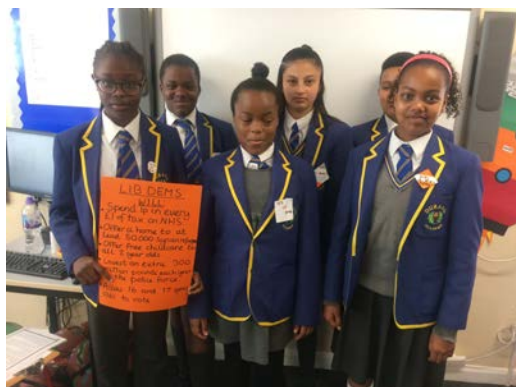 LIB DEMS
WILL
• Spend 1p in every
£1 of tax on NHS
• Offer a home to at
least 50,000 Syrian refugees
• Offer free childcare for
all 2 year olds
• Invest an extra 300
million pounds each year
in the police force
• Allow 16 and 17 year
olds to vote
DURAND
ACADEMY